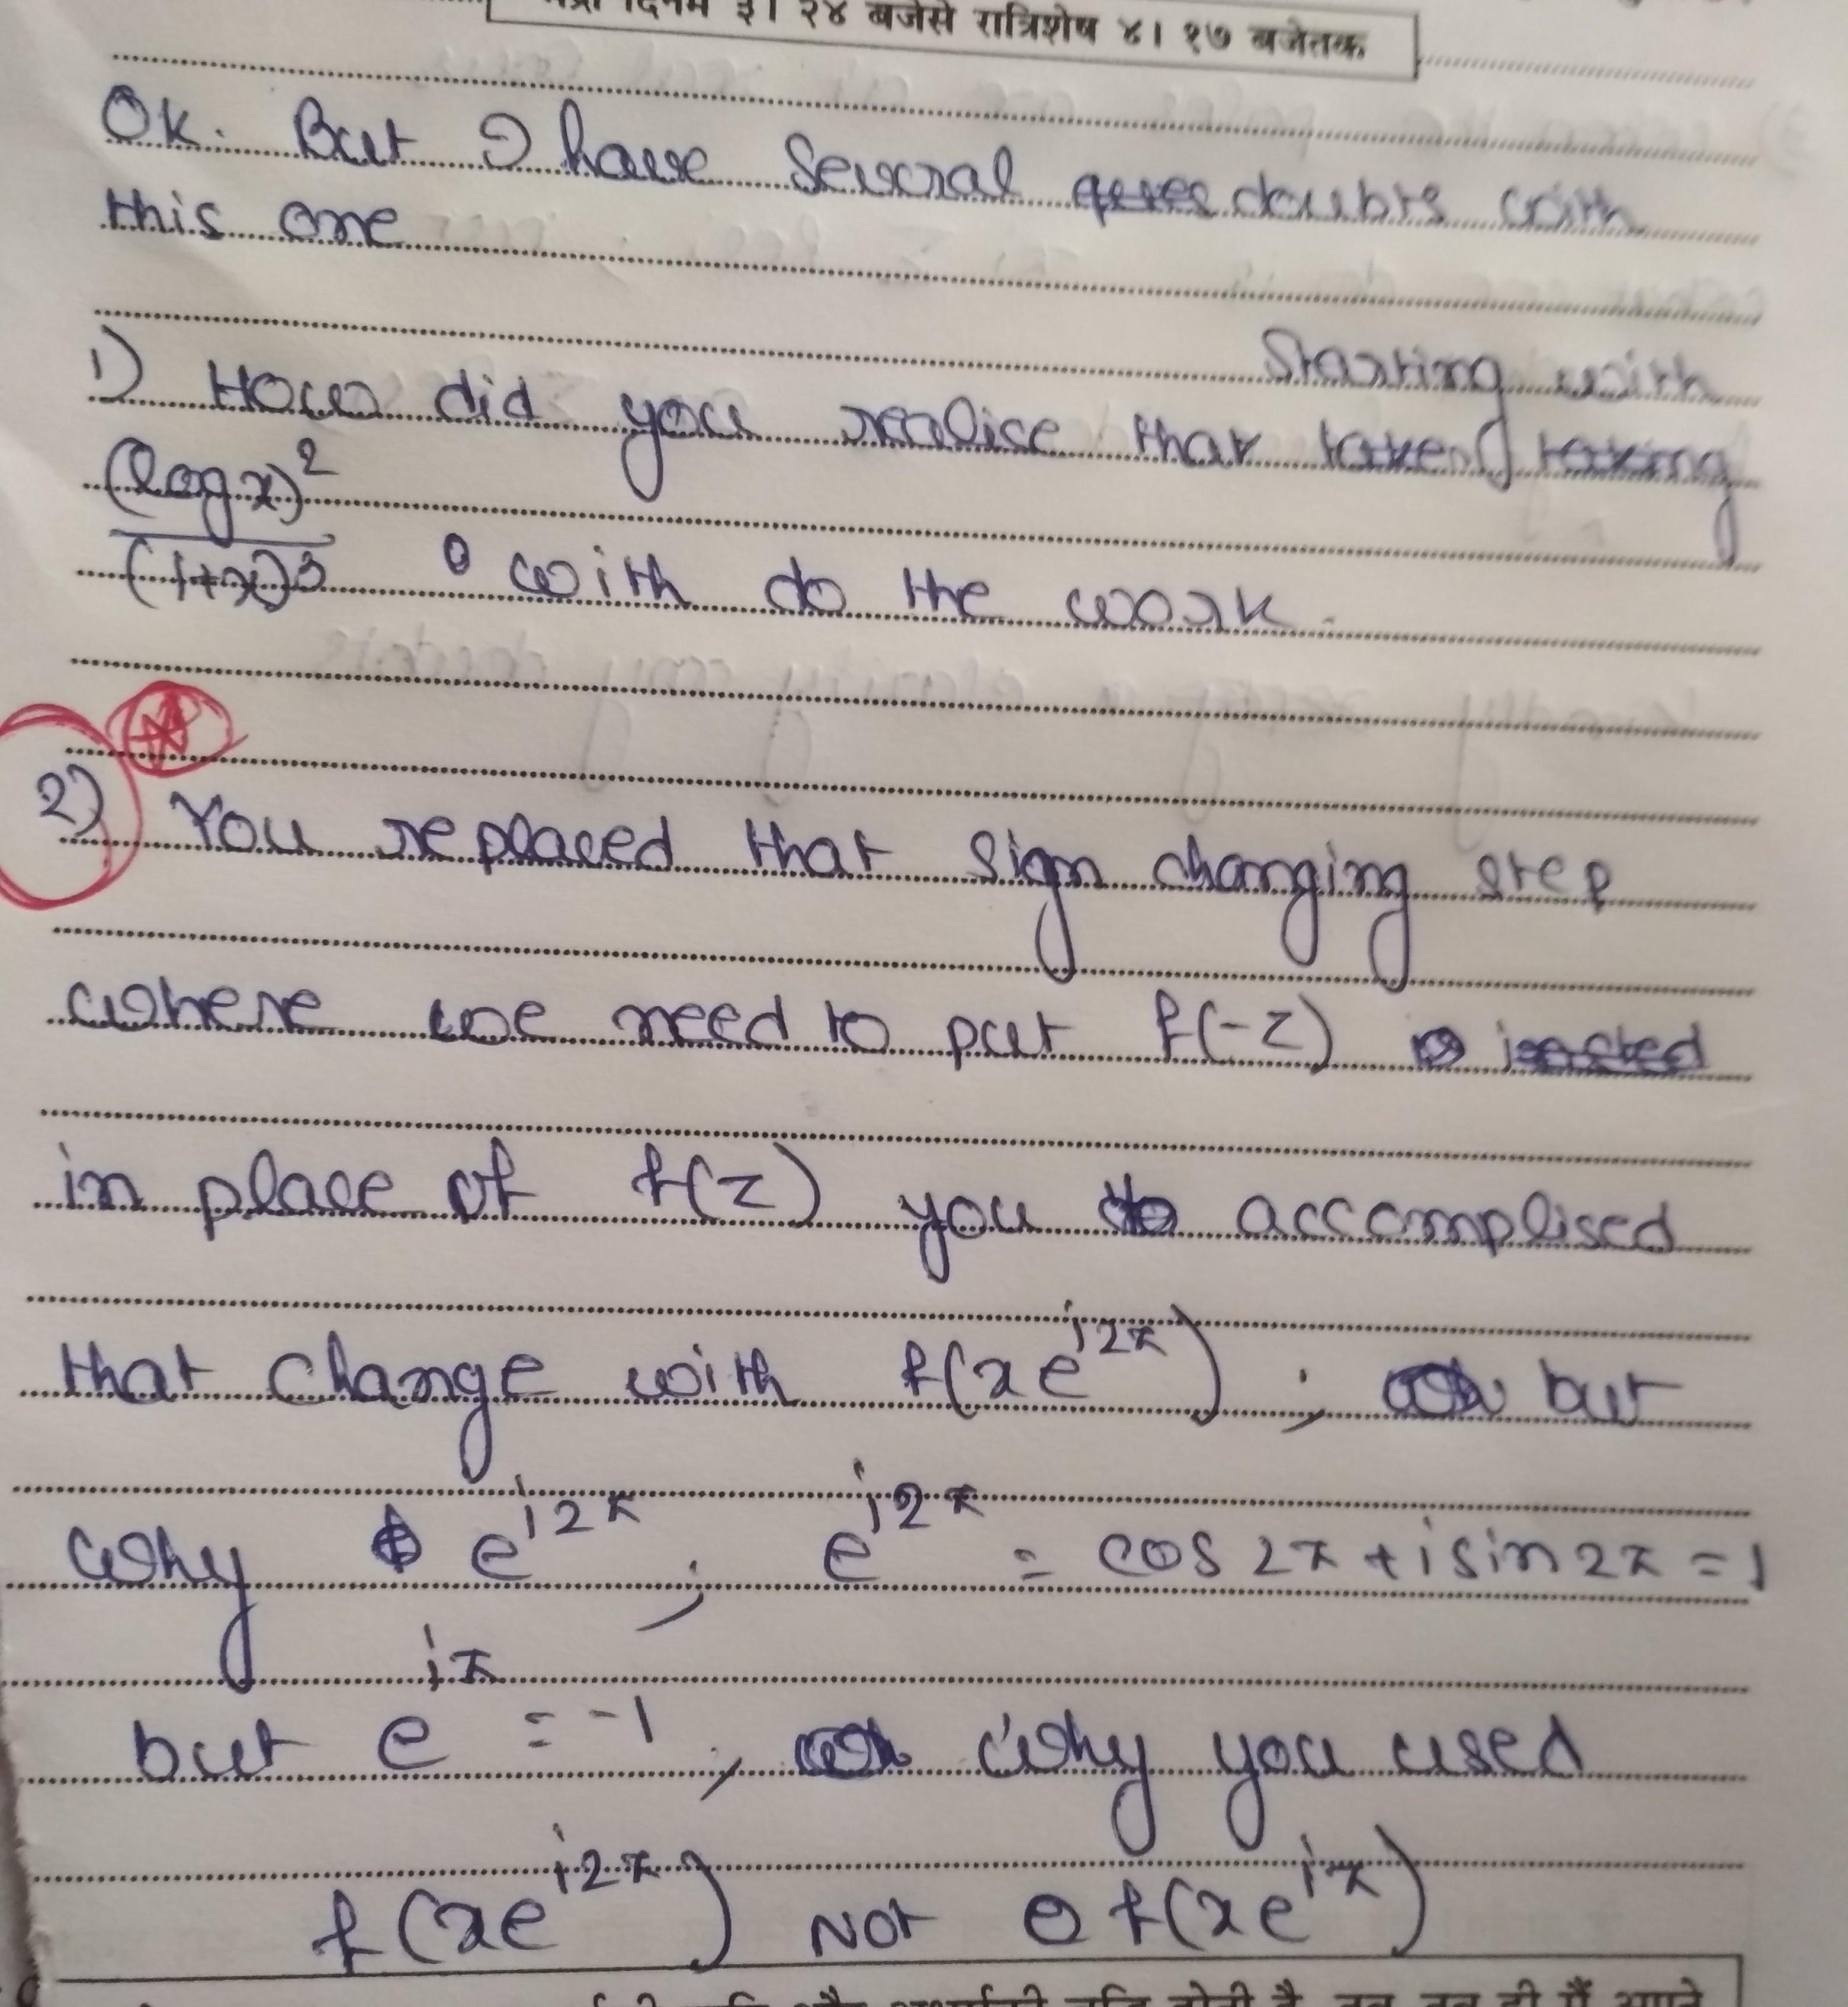 दिनमें ३। २४ बजेसे रात्रिशेष ४। १७ बजेतक
Ok. But I have several doubts with
this one
starting with
1) How did you realise that taking
(log x)²
/ (1+x)³ with do the work.
2) You replaced that sign changing step
where we need to put f(-z)
in place of f(z) you accomplised
that change with f(xe^{i2π}) ; but
why e^{i2π} ; e^{i2π} = cos 2π + i sin 2π = 1
but e^{iπ} = -1 , why you used
f(xe^{i2π}) not f(xe^{iπ})